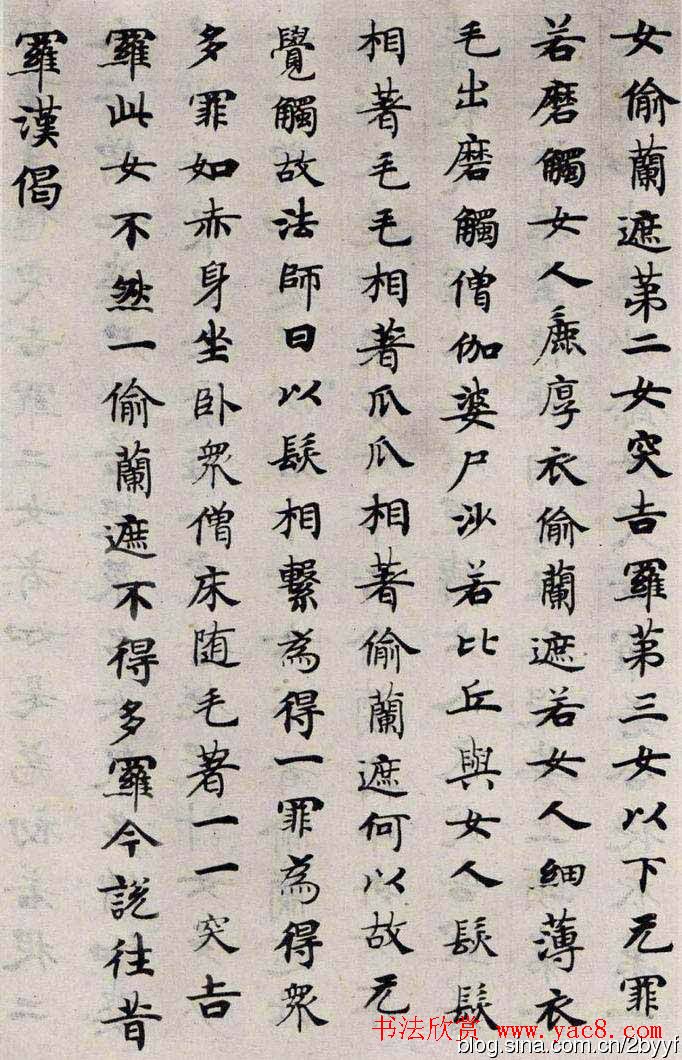 女偷蘭遮第二女突吉羅第三女以下无罪
若磨觸女人麁厚衣偷蘭遮若女人細薄衣
毛出磨觸僧伽婆尸沙若比丘與女人髮髮
相著毛毛相著爪爪相著偷蘭遮何以故无
覺觸故法師曰以髮相繫為得一罪為得眾
多罪如赤身坐卧眾僧床随毛著一一突吉
羅此女不然一偷蘭遮不得多羅今說往昔
羅漢偈
书法欣赏 www.yac8.com
blog.sina.com.cn/2byyf